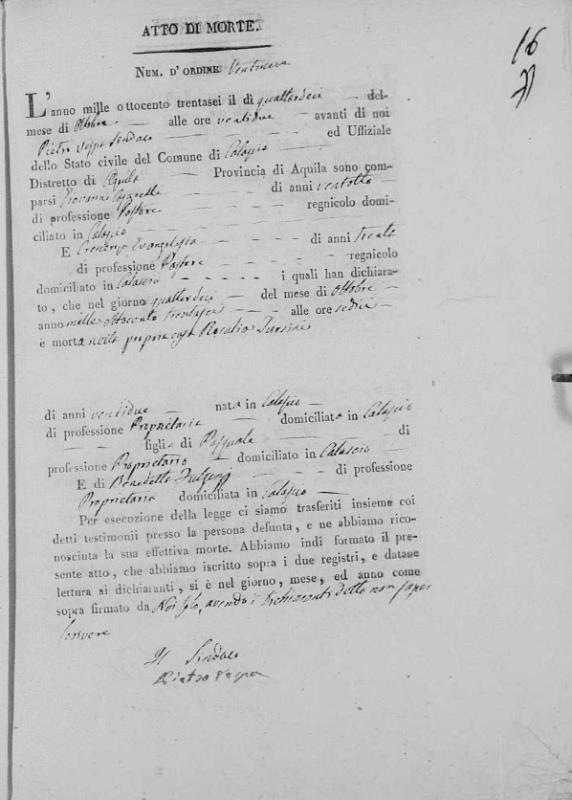 ATTO DI MORTE.
16
NUM. D' ORDINE
L'anno mille ottocento trentasei il dì quattordici del
mese di Ottobre alle ore ventidue avanti di noi
Pietro Sindaco ed Uffiziale
dello Stato civile del Comune di Calascio
Distretto di Aquila Provincia di Aquila sono com-
parsi Giovanni di anni ventotto
di professione Pastore regnicolo domi-
ciliato in Calascio
E Crescenzo Evangelista di anni trenta
di professione Pastore regnicolo
domiciliato in Calascio i quali han dichiara-
to, che nel giorno quattordici del mese di Ottobre
anno mille Ottocento trentasei alle ore sedici
è morta nella propria casa Rosalia
di anni ventidue nata in Calascio
di professione Proprietaria domiciliata in Calascio
figlia di Pasquale di
professione Proprietario domiciliato in Calascio
E di Benedetta di professione
Proprietaria domiciliata in Calascio
Per esecuzione della legge ci siamo trasferiti insieme coi
detti testimonii presso la persona defunta, e ne abbiamo rico-
nosciuta la sua effettiva morte. Abbiamo indi formato il pre-
sente atto, che abbiamo iscritto sopra i due registri, e datane
lettura ai dichiaranti, si è nel giorno, mese, ed anno come
sopra firmato da Noi solo, avendo i testimonianti detto non saper
scrivere
Il Sindaco
Pietro